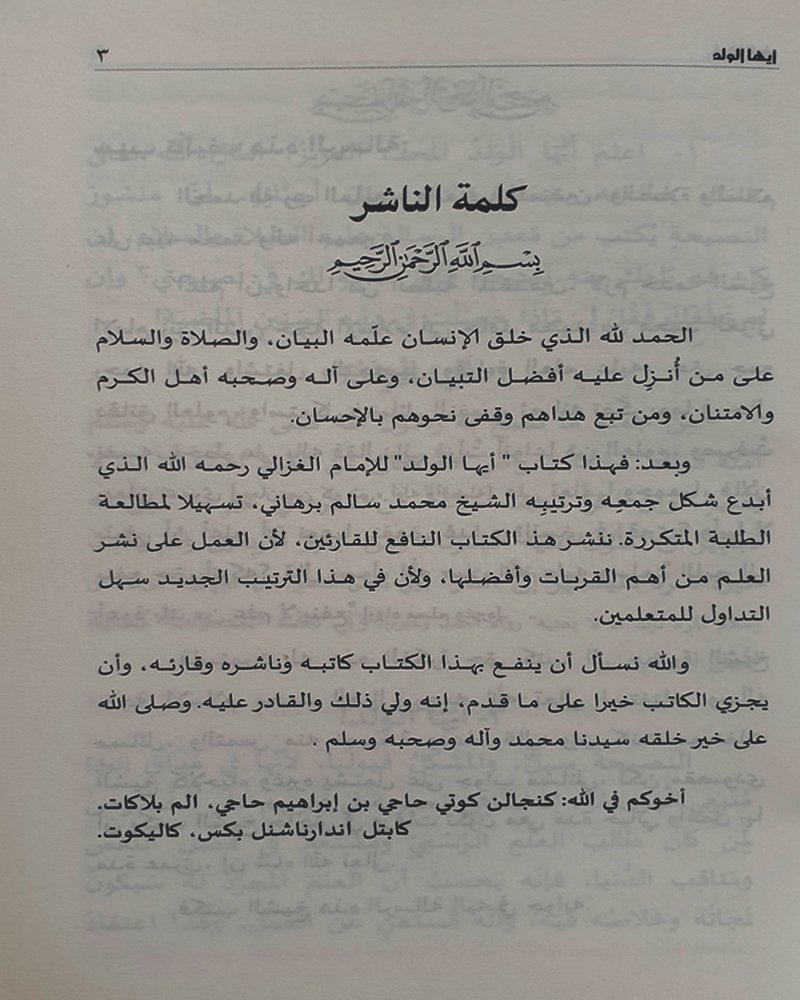 أيها الولد ٣
كلمة الناشر
بسم الله الرحمن الرحيم
الحمد لله الذي خلق الإنسان علّمه البيان، والصلاة والسلام
على من أُنزِل عليه أفضل التبيان، وعلى آله وصحبه أهل الكرم
والامتنان، ومن تبع هداهم وقفى نحوهم بالإحسان.
وبعد: فهذا كتاب " أيها الولد" للإمام الغزالي رحمه الله الذي
أبدع شكل جمعِه وترتيبِه الشيخ محمد سالم برهاني، تسهيلا لمطالعة
الطلبة المتكررة. ننشر هذ الكتاب النافع للقارئين، لأن العمل على نشر
العلم من أهم القربات وأفضلها، ولأن في هذا الترتيب الجديد سهل
التداول للمتعلمين.
والله نسأل أن ينفع بهذا الكتاب كاتبه وناشره وقارئه، وأن
يجزي الكاتب خيرا على ما قدم، إنه ولي ذلك والقادر عليه. وصلى الله
على خير خلقه سيدنا محمد وآله وصحبه وسلم .
أخوكم في الله: كنجالن كوتي حاجي بن إبراهيم حاجي، الم بلاكات.
كابتل اندارناشنل بكس، كاليكوت.